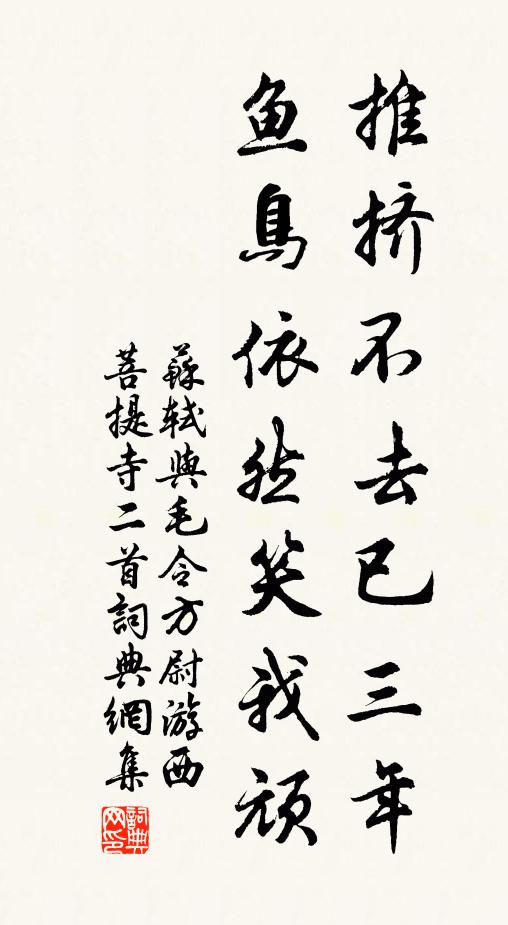 推挤不去已三年
鱼鳥依然笑我顽
蘇軾與毛令方尉游西
菩提寺二首詞典網集
詞典
网印